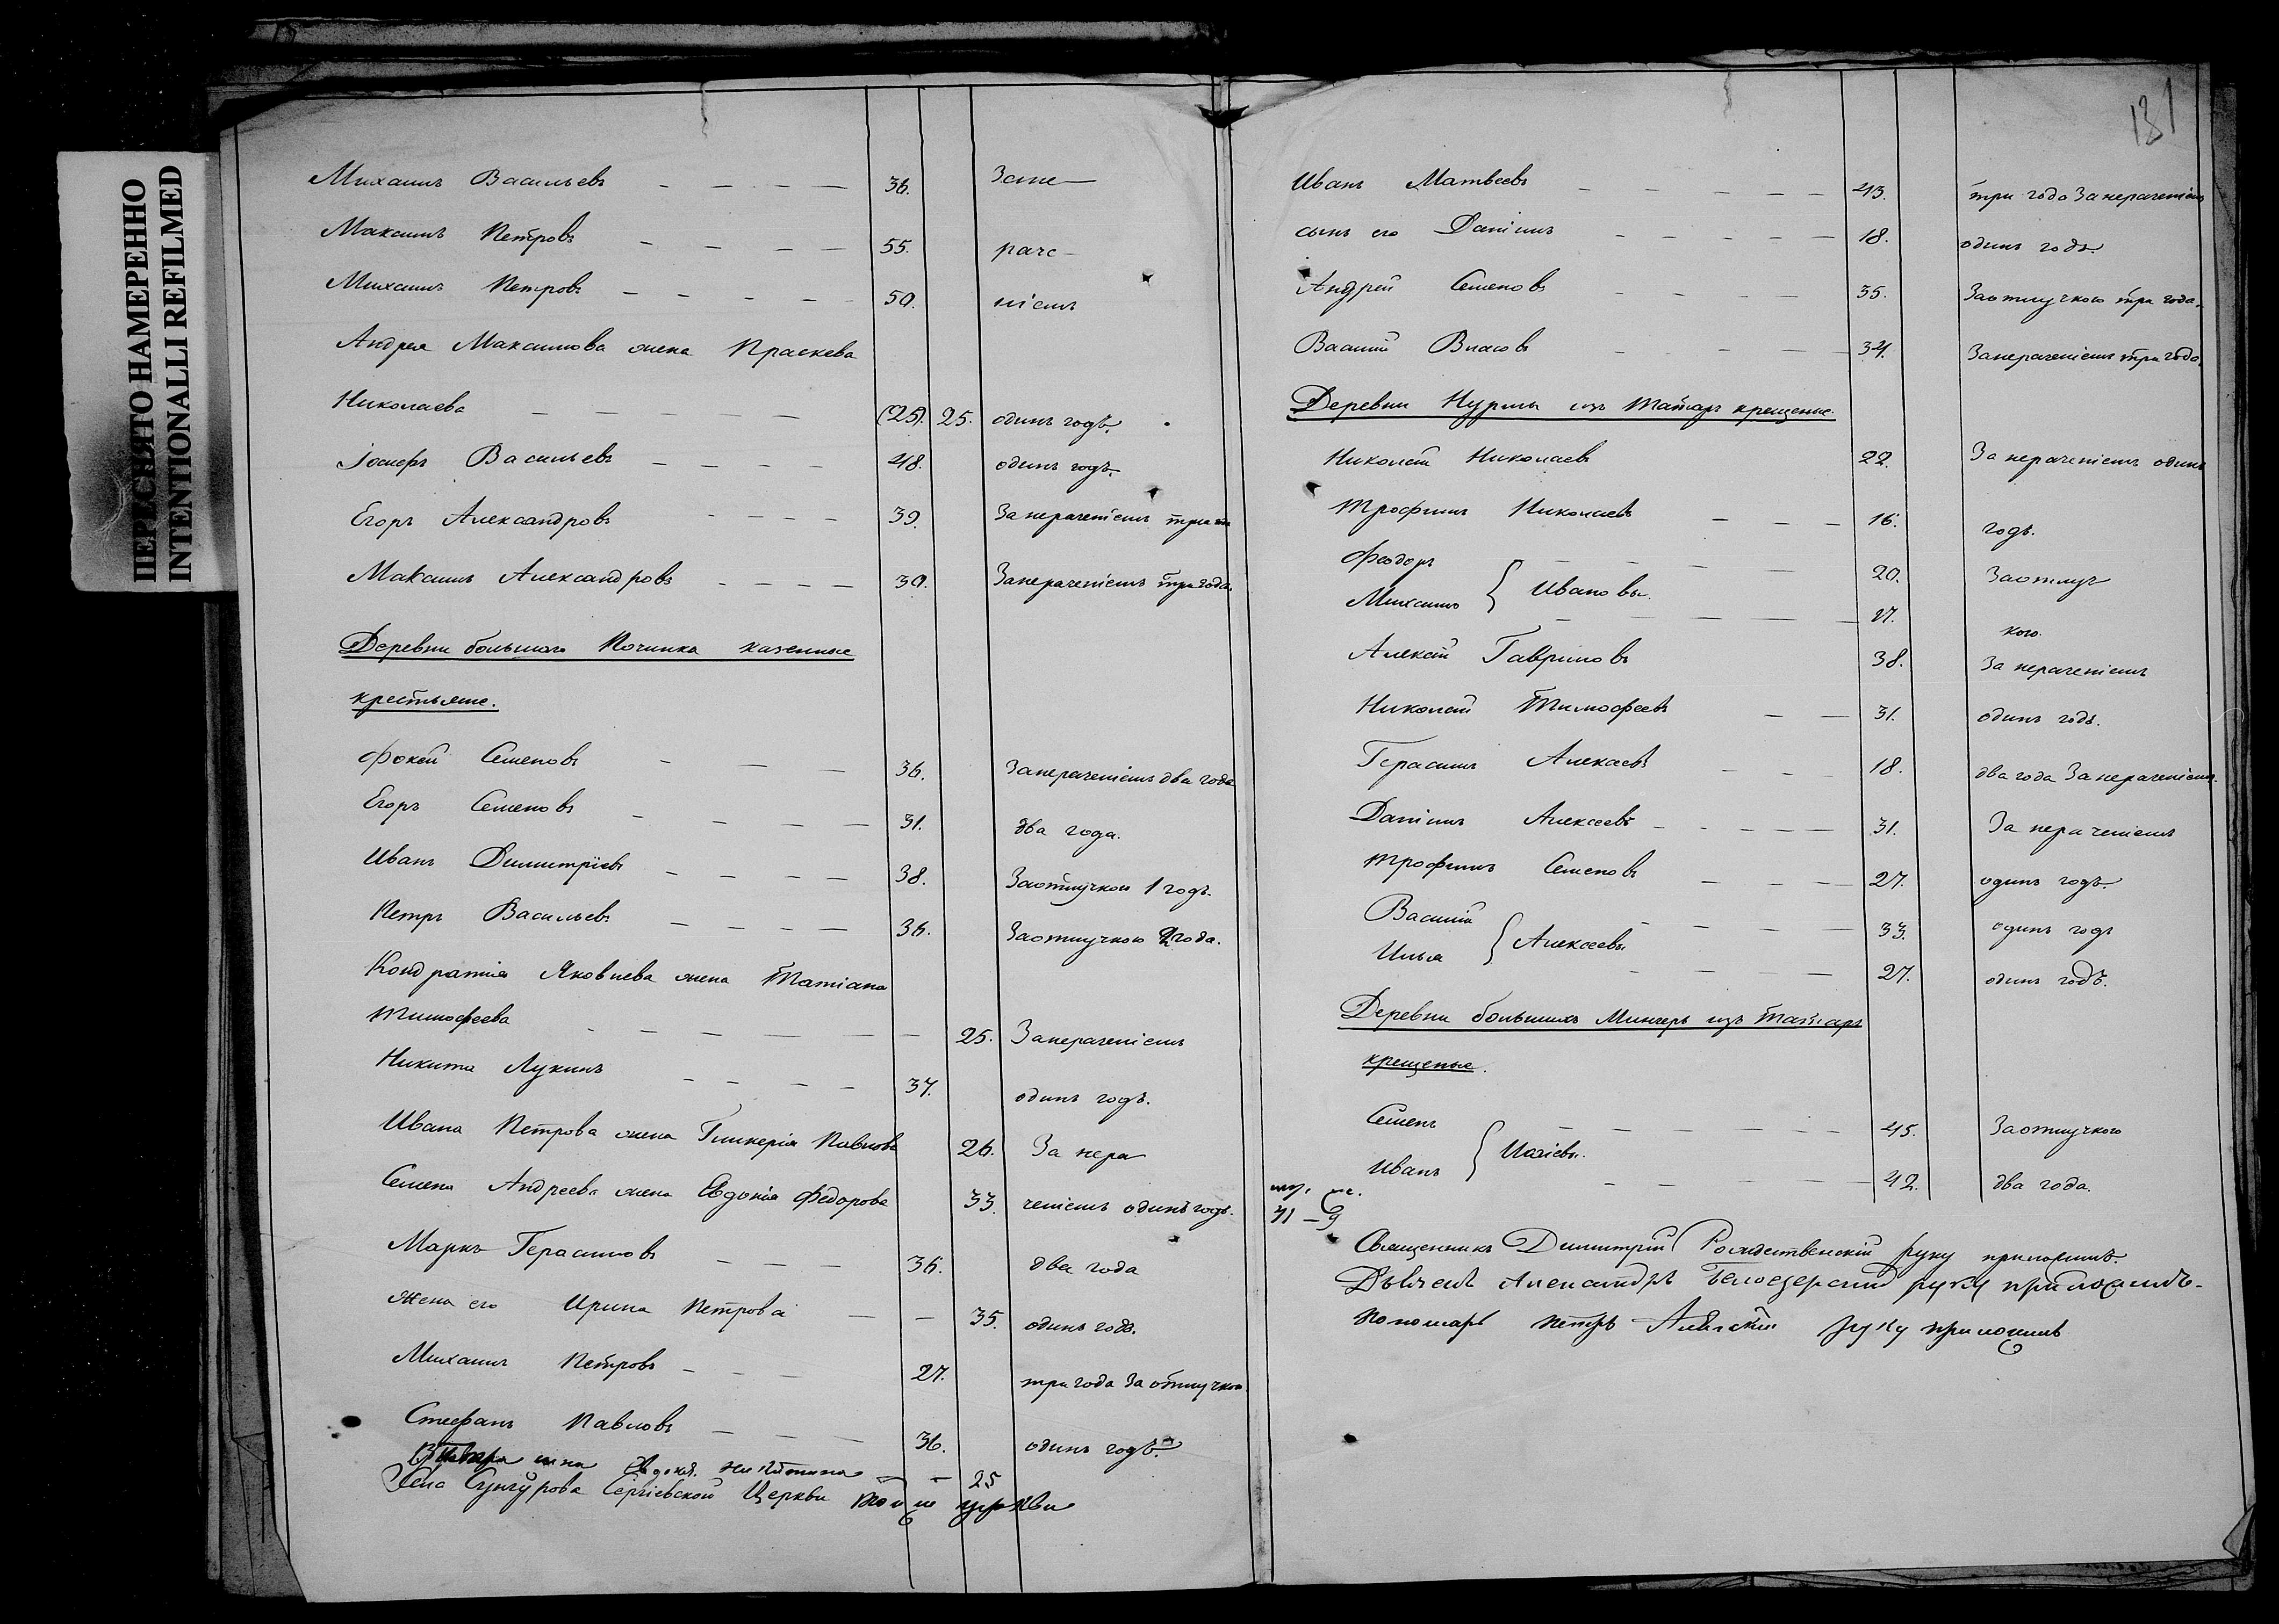 ПЕРЕСНЯТО НАМЕРЕННО
INTENTIONALLI REFILMED
Михаилъ Васильевъ 36. Зане-
Максимъ Петровъ 55. раче-
Михаилъ Петровъ 50. ніемъ
Андрея Максимова жена Праскева
Николаева (25). 25. одинъ годъ.
Іосифъ Васильевъ 48. одинъ годъ.
Егоръ Александровъ 39. Занераченіемъ три
Максимъ Александровъ 30. Занераченіемъ три года.
Деревни большаго Починка казенные
крестьяне.
Фокей Семеновъ 36. Занераченіемъ два года
Егоръ Семеновъ 31. два года.
Иванъ Димитріевъ 38. Заотлучкою 1 годъ.
Петръ Васильевъ 36. Заотлучкою 2 года.
Кондратія Яковлева жена Татіана
Тимофеева 25. Занераченіемъ
Никита Лукинъ 37. одинъ годъ.
Ивана Петрова жена Гликерія Павлова 26. За нера
Семена Андреева жена Евдокія Федорова 33. ченіемъ одинъ годъ.
Маркъ Герасимовъ 36. два года
жена его Ирина Петрова 35. одинъ годъ.
Михаилъ Петровъ 27. три года За отлучкою
Стефанъ Павловъ 36. одинъ годъ.
жена Евдокія Никитина 25
Села Сунгурова Сергіевской Церкви той же церкви
131
Иванъ Матвеевъ 43. три года Занераченіемъ
сынъ его Даніилъ 18. одинъ годъ.
Андрей Семеновъ 35. Заотлучкою три года.
Василій Власовъ 34. Занераченіемъ три года.
Деревни Нурмы изъ татаръ крещеные.
Николай Николаевъ 22. За нераченіемъ одинъ
Трофимъ Николаевъ 16. годъ.
Феодоръ 20. Заотлуч
Михаилъ } Ивановы. 27. кою.
Алексѣй Гавриловъ 38. За нераченіемъ
Николай Тимофеевъ 31. одинъ годъ.
Герасимъ Алексѣевъ 18. два года За нераченіемъ.
Даніилъ Алексеевъ 31. За нераченіемъ
Трофимъ Семеновъ 27. одинъ годъ.
Василій 33. одинъ годъ
Илья } Алексеевы 27. одинъ годъ.
Деревни большихъ Мингеръ изъ татаръ
крещеные.
Семенъ 45. Заотлучкою
Иванъ } Исаіевы. 42. два года.
му. же.
71 - 9
Священникъ Димитрий Рождественскій руку приложилъ.
Дьячекъ Александръ Белоезерскій руку приложилъ.
Пономарь Петръ руку приложилъ